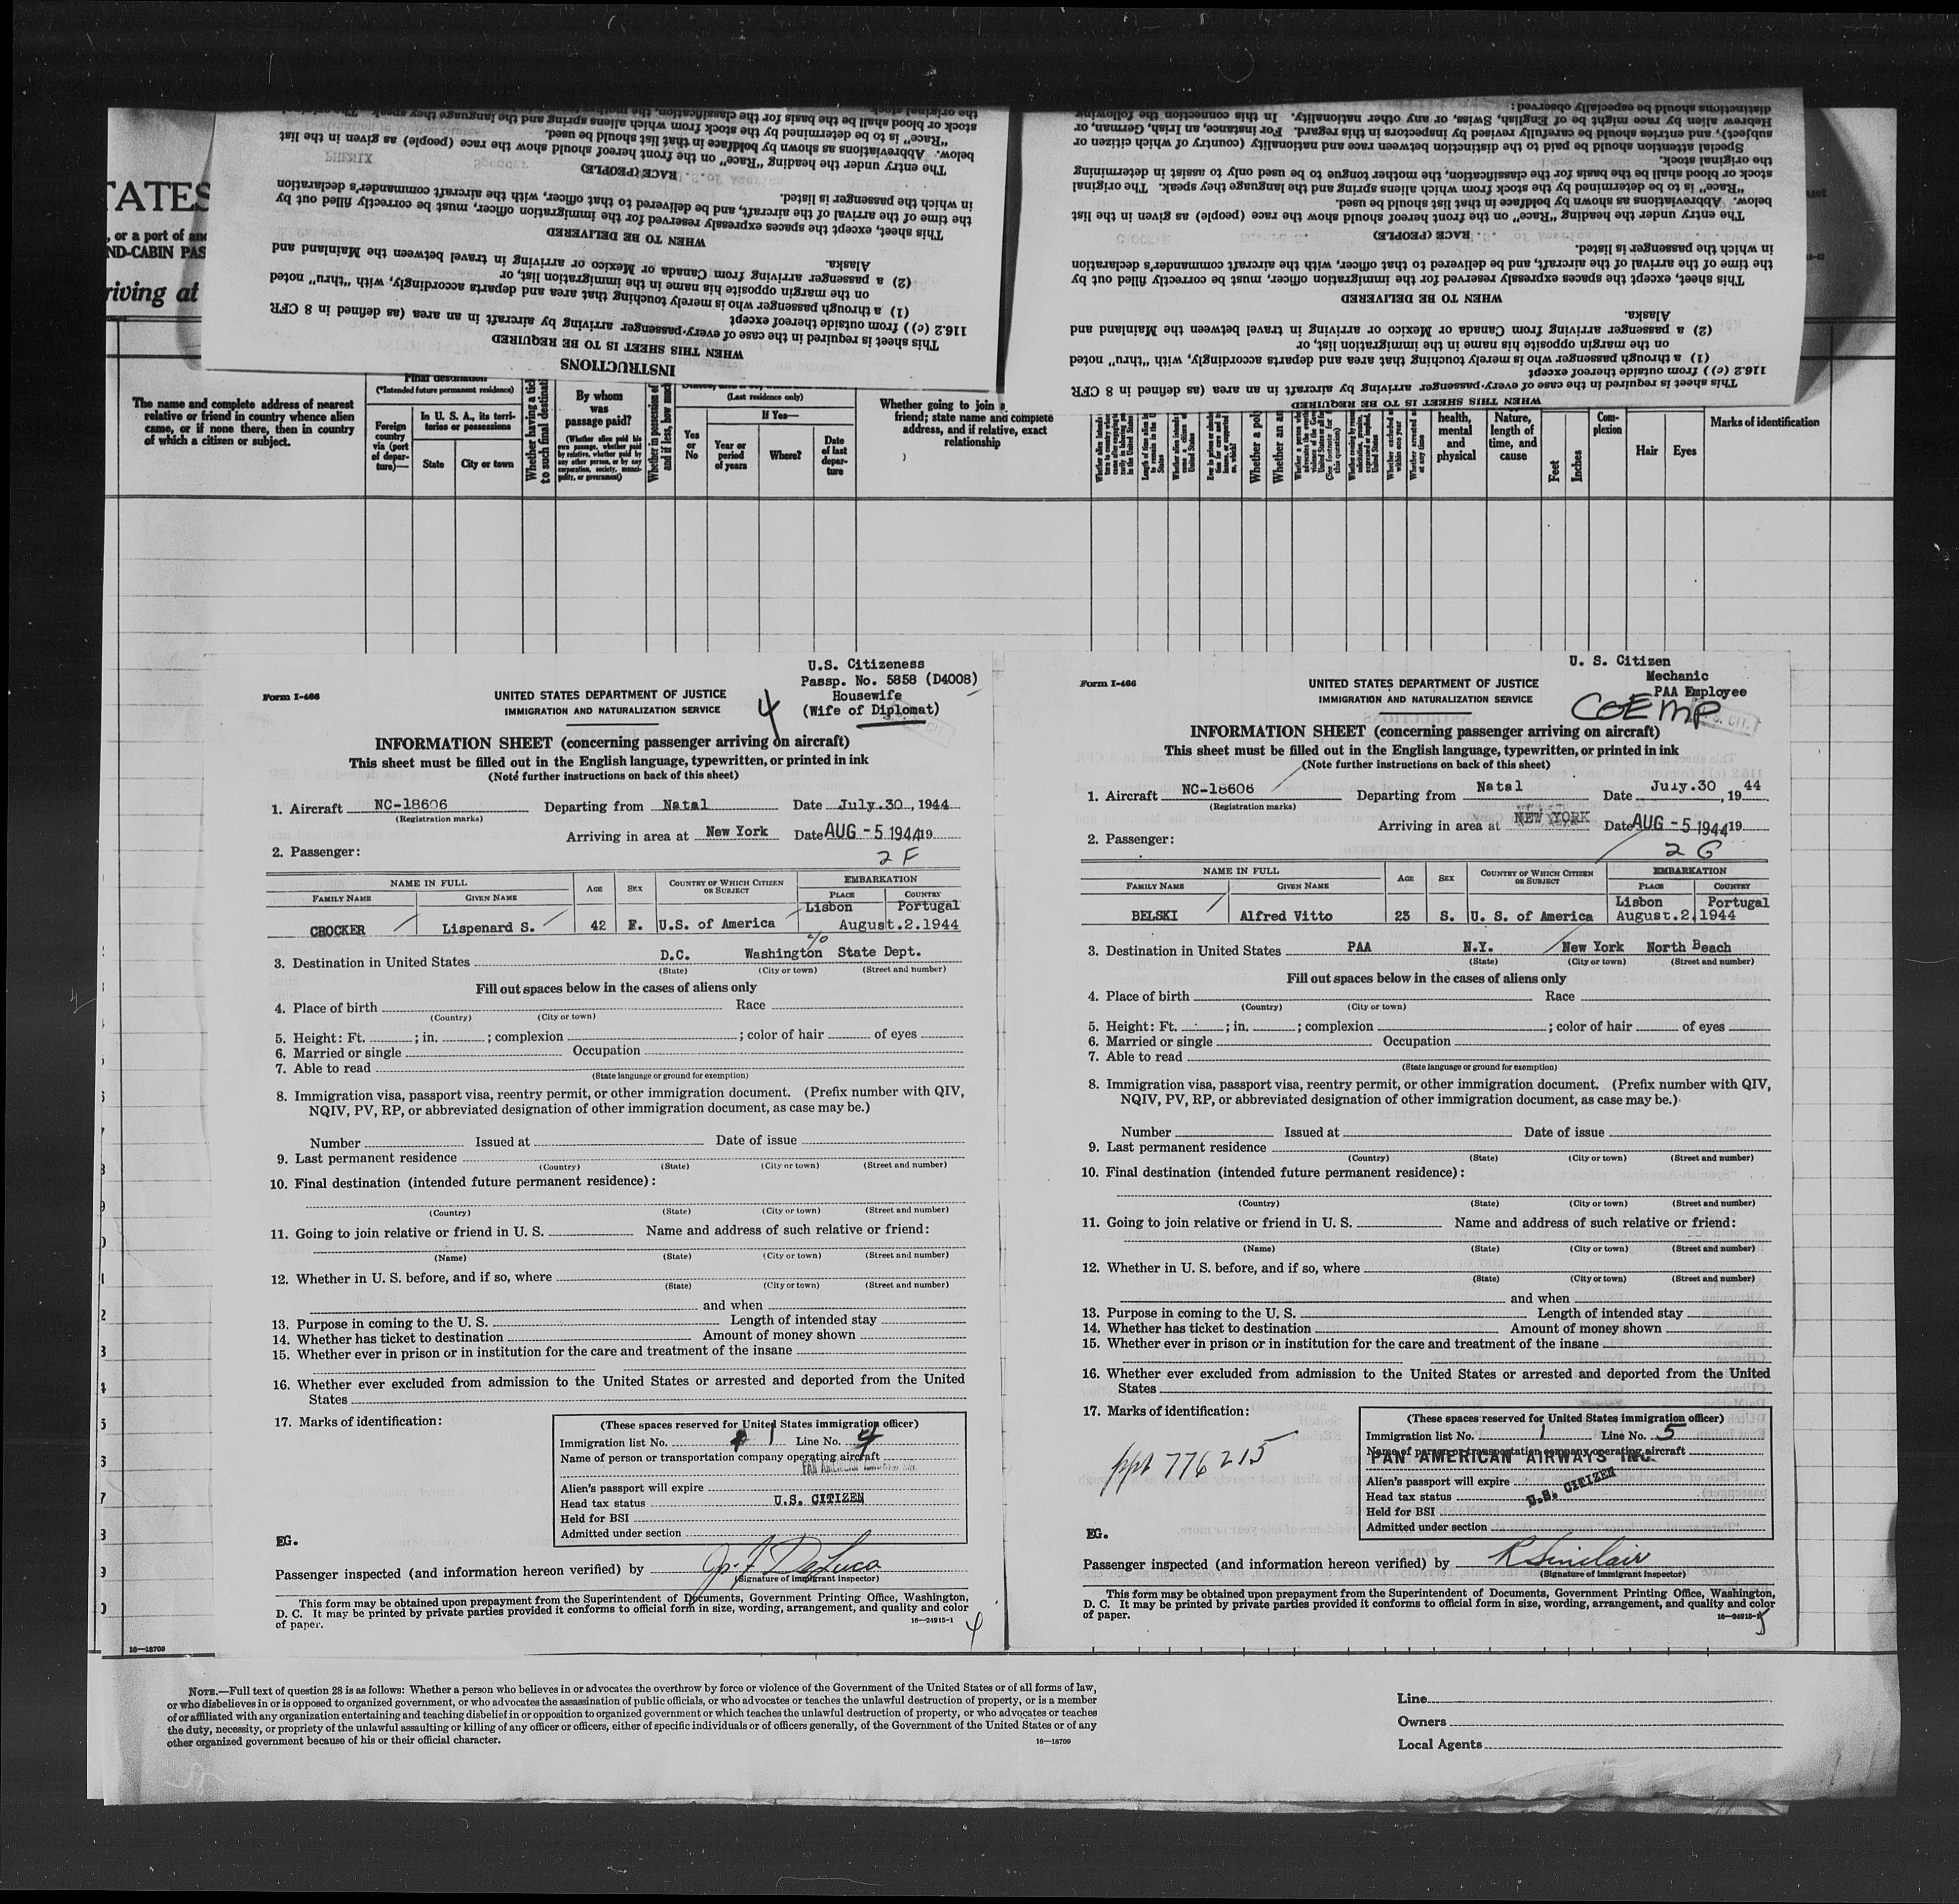 the original stock.
stock or blood shall be the basis for the classification, the mother tongue
"Race" is to be determined by the stock from which aliens spring and the language they speak. The original
below. Abbreviations as shown by boldface in that list should be used.
The entry under the heading "Race" on the front hereof should show the race (people) as given in the list
RACE (PEOPLE)
in which the passenger is listed.
the time of the arrival of the aircraft, and be delivered to that officer, with the aircraft commander's declaration
This sheet, except the spaces expressly reserved for the immigration officer, must be correctly filled out by
WHEN TO BE DELIVERED
Alaska.
(2) a passenger arriving from Canada or Mexico or arriving in travel between the Mainland and
on the margin opposite his name in the immigration list, or
(1) a through passenger who is merely touching that area and departs accordingly, with "thru" noted
116.2 (c) ) from outside thereof except
This sheet is required in the case of every passenger arriving by aircraft in an area (as defined in 8 CFR
WHEN THIS SHEET IS TO BE REQUIRED
INSTRUCTIONS
distinctions should be especially observed:
Hebrew alien by race might be of English, Swiss, or any other nationality. In this connection the following
subject), and entries should be carefully revised by inspectors in this regard. For instance, an Irish, German, or
Special attention should be paid to the distinction between race and nationality (country of which citizen or
the original stock.
stock or blood shall be the basis for the classification, the mother tongue to be used only to assist in determining
"Race" is to be determined by the stock from which aliens spring and the language they speak. The original
below. Abbreviations as shown by boldface in that list should be used.
The entry under the heading "Race" on the front hereof should show the race (people) as given in the list
RACE (PEOPLE)
in which the passenger is listed.
the time of the arrival of the aircraft, and be delivered to that officer, with the aircraft commander's declaration
This sheet, except the spaces expressly reserved for the immigration officer, must be correctly filled out by
WHEN TO BE DELIVERED
Alaska.
(2) a passenger arriving from Canada or Mexico or arriving in travel between the Mainland and
on the margin opposite his name in the immigration list, or
(1) a through passenger who is merely touching that area and departs accordingly, with "thru" noted
116.2 (c) ) from outside thereof except
This sheet is required in the case of every passenger arriving by aircraft in an area (as defined in 8 CFR
WHEN THIS SHEET IS TO BE REQUIRED
TATES
, or a port of
ND-CABIN PAS
riving at
The name and complete address of nearest
relative or friend in country whence alien
came, or if none there, then in country
of which a citizen or subject.
Final destination
(*Intended future permanent residence)
Foreign
country
via (port
of depar-
ture)—
In U. S. A., its terri-
tories or possessions
State
City or town
Whether having a tick
to such final destinati
By whom
was
passage paid?
(Whether alien paid his
own passage, whether paid
by relative, whether paid by
any other person, or by any
corporation, society, munici-
pality, or government)
Whether in possession of
and if less, how muc
(Last residence only)
Yes
or
No
If Yes—
Year or
period
of years
Where?
Date
of last
depar-
ture
Whether going to join a
friend; state name and complete
address, and if relative, exact
relationship
Whether a poly
Whether an an
health,
mental
and
physical
Nature,
length of
time, and
cause
Feet
Inches
Com-
plexion
Hair
Eyes
Marks of identification
U.S. Citizeness
Passp. No. 5858 (D4008)
Housewife
(Wife of Diplomat)
4
Form I-466
UNITED STATES DEPARTMENT OF JUSTICE
IMMIGRATION AND NATURALIZATION SERVICE
INFORMATION SHEET (concerning passenger arriving on aircraft)
This sheet must be filled out in the English language, typewritten, or printed in ink
(Note further instructions on back of this sheet)
1. Aircraft NC-18606 Departing from Natal Date July.30, 1944
(Registration marks)
Arriving in area at New York Date AUG - 5 1944 19
2. Passenger: 2 F
NAME IN FULL AGE SEX COUNTRY OF WHICH CITIZEN OR SUBJECT EMBARKATION
FAMILY NAME GIVEN NAME PLACE COUNTRY
Lisbon Portugal
CROCKER Lispenard S. 42 F. U.S. of America August.2.1944
3. Destination in United States D.C. Washington c/o State Dept.
(State) (City or town) (Street and number)
Fill out spaces below in the cases of aliens only
4. Place of birth Race
(Country) (City or town)
5. Height: Ft. ; in. ; complexion ; color of hair of eyes
6. Married or single Occupation
7. Able to read
(State language or ground for exemption)
8. Immigration visa, passport visa, reentry permit, or other immigration document. (Prefix number with QIV,
NQIV, PV, RP, or abbreviated designation of other immigration document, as case may be.)
Number Issued at Date of issue
9. Last permanent residence
(Country) (State) (City or town) (Street and number)
10. Final destination (intended future permanent residence):
(Country) (State) (City or town) (Street and number)
11. Going to join relative or friend in U. S. Name and address of such relative or friend:
(Name) (State) (City or town) (Street and number)
12. Whether in U. S. before, and if so, where
(State) (City or town) (Street and number)
and when
13. Purpose in coming to the U. S. Length of intended stay
14. Whether has ticket to destination Amount of money shown
15. Whether ever in prison or in institution for the care and treatment of the insane
16. Whether ever excluded from admission to the United States or arrested and deported from the United
States
17. Marks of identification:
(These spaces reserved for United States immigration officer)
Immigration list No. 1 Line No. 4
Name of person or transportation company operating aircraft
Alien's passport will expire
Head tax status U.S. CITIZEN
Held for BSI
Admitted under section
EG.
Passenger inspected (and information hereon verified) by J. F. DeLuca
(Signature of immigrant inspector)
This form may be obtained upon prepayment from the Superintendent of Documents, Government Printing Office, Washington,
D. C. It may be printed by private parties provided it conforms to official form in size, wording, arrangement, and quality and color
of paper. 16—24915-1
4
U. S. Citizen
Mechanic
PAA Employee
CGEMP
Form I-466
UNITED STATES DEPARTMENT OF JUSTICE
IMMIGRATION AND NATURALIZATION SERVICE
INFORMATION SHEET (concerning passenger arriving on aircraft)
This sheet must be filled out in the English language, typewritten, or printed in ink
(Note further instructions on back of this sheet)
1. Aircraft NC-18606 Departing from Natal Date July.30, 1944
(Registration marks)
Arriving in area at NEW YORK Date AUG - 5 1944 19
2. Passenger: 2 G
NAME IN FULL AGE SEX COUNTRY OF WHICH CITIZEN OR SUBJECT EMBARKATION
FAMILY NAME GIVEN NAME PLACE COUNTRY
Lisbon Portugal
BELSKI Alfred Vitto 23 S. U. S. of America August.2.1944
3. Destination in United States PAA N.Y. New York North Beach
(State) (City or town) (Street and number)
Fill out spaces below in the cases of aliens only
4. Place of birth Race
(Country) (City or town)
5. Height: Ft. ; in. ; complexion ; color of hair of eyes
6. Married or single Occupation
7. Able to read
(State language or ground for exemption)
8. Immigration visa, passport visa, reentry permit, or other immigration document. (Prefix number with QIV,
NQIV, PV, RP, or abbreviated designation of other immigration document, as case may be.)
Number Issued at Date of issue
9. Last permanent residence
(Country) (State) (City or town) (Street and number)
10. Final destination (intended future permanent residence):
(Country) (State) (City or town) (Street and number)
11. Going to join relative or friend in U. S. Name and address of such relative or friend:
(Name) (State) (City or town) (Street and number)
12. Whether in U. S. before, and if so, where
(State) (City or town) (Street and number)
and when
13. Purpose in coming to the U. S. Length of intended stay
14. Whether has ticket to destination Amount of money shown
15. Whether ever in prison or in institution for the care and treatment of the insane
16. Whether ever excluded from admission to the United States or arrested and deported from the United
States
17. Marks of identification:
ppt 776215
(These spaces reserved for United States immigration officer)
Immigration list No. 1 Line No. 5
Name of person or transportation company operating aircraft
PAN AMERICAN AIRWAYS INC.
Alien's passport will expire
Head tax status U.S. CITIZEN
Held for BSI
Admitted under section
EG.
Passenger inspected (and information hereon verified) by R Sinclair
(Signature of immigrant inspector)
This form may be obtained upon prepayment from the Superintendent of Documents, Government Printing Office, Washington,
D. C. It may be printed by private parties provided it conforms to official form in size, wording, arrangement, and quality and color
of paper. 16—24915-1
5
16—18709
NOTE.—Full text of question 28 is as follows: Whether a person who believes in or advocates the overthrow by force or violence of the Government of the United States or of all forms of law,
or who disbelieves in or is opposed to organized government, or who advocates the assassination of public officials, or who advocates or teaches the unlawful destruction of property, or is a member
of or affiliated with any organization entertaining and teaching disbelief in or opposition to organized government or which teaches the unlawful destruction of property, or who advocates or teaches
the duty, necessity, or propriety of the unlawful assaulting or killing of any officer or officers, either of specific individuals or of officers generally, of the Government of the United States or of any
other organized government because of his or their official character. 16—18709
Line
Owners
Local Agents